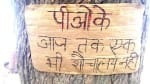 पीओके
आज तक एक
भी शौचालय नहीं